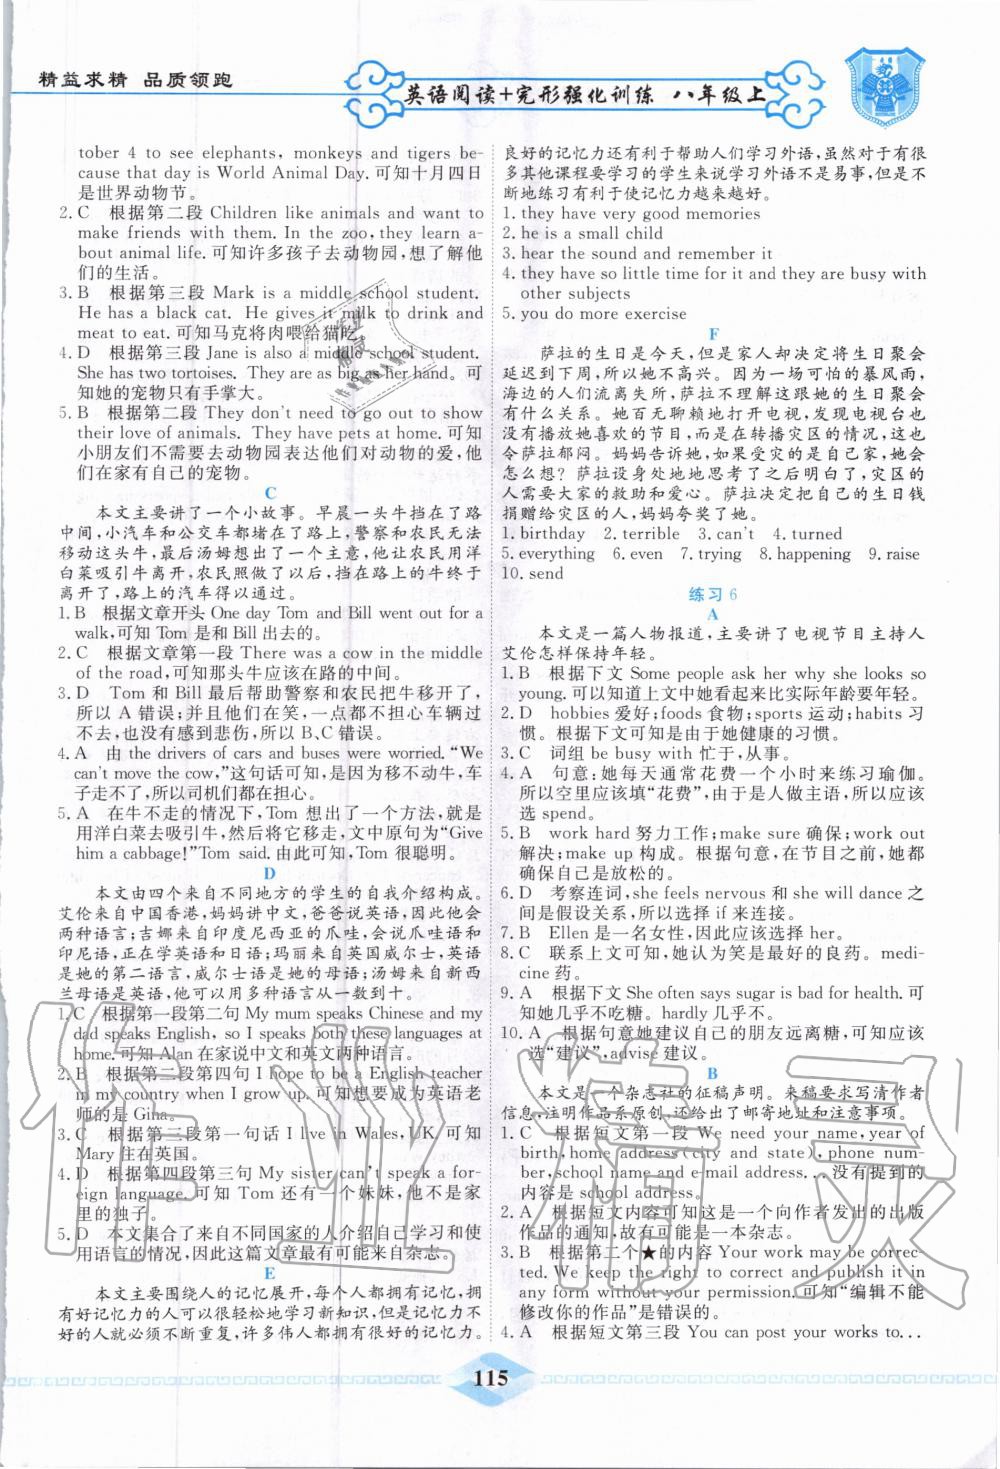 精益求精 品质领跑
英语阅读+完形强化训练 八年级上
tober 4 to see elephants, monkeys and tigers be-
cause that day is World Animal Day. 可知十月四日
是世界动物节。
2. C 根据第二段 Children like animals and want to
make friends with them. In the zoo, they learn a-
bout animal life. 可知许多孩子去动物园,想了解他
们的生活。
3. B 根据第三段 Mark is a middle school student.
He has a black cat. He gives it milk to drink and
meat to eat. 可知马克将肉喂给猫吃。
4. D 根据第三段 Jane is also a middle school student.
She has two tortoises. They are as big as her hand. 可
知她的宠物只有手掌大。
5. B 根据第二段 They don't need to go out to show
their love of animals. They have pets at home. 可知
小朋友们不需要去动物园表达他们对动物的爱,他
们在家有自己的宠物。
C
本文主要讲了一个小故事。早晨一头牛挡在了路
中间,小汽车和公交车都堵在了路上,警察和农民无法
移动这头牛,最后汤姆想出了一个主意,他让农民用洋
白菜吸引牛离开,农民照做了以后,挡在路上的牛终于
离开了,路上的汽车得以通过。
1. B 根据文章开头 One day Tom and Bill went out for a
walk,可知 Tom 是和 Bill 出去的。
2. C 根据文章第一段 There was a cow in the middle
of the road,可知那头牛应该在路的中间。
3. D Tom 和 Bill 最后帮助警察和农民把牛移开了,
所以 A 错误;并且他们在笑,一点都不担心车辆过
不去,也没有感到悲伤,所以 B、C 错误。
4. A 由 the drivers of cars and buses were worried. “We
can't move the cow,”这句话可知,因为移不动牛,车
子走不了了,所以司机们都在担心。
5. A 在牛不走的情况下, Tom 想出了一个方法,就是
用洋白菜去吸引牛,然后将它移走,文中原句为“Give
him a cabbage!”Tom said. 由此可知,Tom 很聪明。
D
本文由四个来自不同地方的学生的自我介绍构成。
艾伦来自中国香港,妈妈讲中文,爸爸说英语,因此他会
两种语言;吉娜来自印度尼西亚的爪哇,会说爪哇语和
印尼语,正在学英语和日语;玛丽来自英国威尔士,英语
是她的第二语言,威尔士语是她的母语;汤姆来自新西
兰母语是英语,他可以用多种语言从一数到十。
1. C 根据第一段第二句 My mum speaks Chinese and my
dad speaks English, so I speak both these languages at
home. 可知 Alan 在家说中文和英文两种语言。
2. B 根据第二段第四句 I hope to be a English teacher
in my country when I grow up. 可知想要成为英语老
师的是 Gina。
3. C 根据第三段第一句话 I live in Wales, UK. 可知
Mary 住在英国。
4. D 根据第四段第三句 My sister can't speak a for-
eign language. 可知 Tom 还有一个妹妹,他不是家
里的独子。
5. D 本文集合了来自不同国家的人介绍自己学习和使
用语言的情况,因此这篇文章最有可能来自杂志。
E
本文主要围绕人的记忆展开,每个人都拥有记忆,拥
有好记忆力的人可以很轻松地学习新知识,但是记忆力不
好的人就必须不断重复,许多伟人都拥有很好的记忆力。
良好的记忆力还有利于帮助人们学习外语,虽然对于有很
多其他课程要学习的学生来说学习外语不是易事,但是不
断地练习有利于使记忆力越来越好。
1. they have very good memories
2. he is a small child
3. hear the sound and remember it
4. they have so little time for it and they are busy with
other subjects
5. you do more exercise
F
萨拉的生日是今天,但是家人却决定将生日聚会
延迟到下周,所以她不高兴。因为一场可怕的暴风雨,
海边的人们流离失所,萨拉不理解这跟她的生日聚会
有什么关系。她百无聊赖地打开电视,发现电视台也
没有播放她喜欢的节目,而是在转播灾区的情况,这也
令萨拉郁闷。妈妈告诉她,如果受灾的是自己家,她会
怎么想?萨拉设身处地地思考了之后明白了,灾区的
人需要大家的救助和爱心。萨拉决定把自己的生日钱
捐赠给灾区的人,妈妈夸奖了她。
1. birthday 2. terrible 3. can't 4. turned
5. everything 6. even 7. trying 8. happening 9. raise
10. send
练习 6
A
本文是一篇人物报道,主要讲了电视节目主持人
艾伦怎样保持年轻。
1. B 根据下文 Some people ask her why she looks so
young. 可以知道上文中她看起来比实际年龄要年轻。
2. D hobbies 爱好;foods 食物;sports 运动;habits 习
惯。根据下文可知是由于她健康的习惯。
3. C 词组 be busy with 忙于,从事。
4. A 句意:她每天通常花费一个小时来练习瑜伽。
所以空里应该填“花费”,由于是人做主语,所以应该
选 spend。
5. B work hard 努力工作;make sure 确保;work out
解决;make up 构成。根据句意,在节目之前,她都
确保自己是放松的。
6. D 考察连词,she feels nervous 和 she will dance 之
间是假设关系,所以选择 if 来连接。
7. B Ellen 是一名女性,因此应该选择 her。
8. C 联系上文可知,她认为笑是最好的良药。medi-
cine 药。
9. A 根据下文 She often says sugar is bad for health. 可
知她几乎不吃糖。hardly 几乎不。
10. A 根据句意她建议自己的朋友远离糖,可知应该
选“建议”,advise 建议。
B
本文是一个杂志社的征稿声明。来稿要求写清作者
信息,注明作品系原创,还给出了邮寄地址和注意事项。
1. C 根据短文第一段 We need your name, year of
birth, home address (city and state), phone num-
ber, school name and e-mail address... 没有提到的
内容是 school address。
2. A 根据短文内容可知这是一个向作者发出的出版
作品的通知,故有可能是一本杂志。
3. B 根据第二个★的内容 Your work may be correc-
ted. We keep the right to correct and publish it in
any form without your permission. 可知“编辑不能
修改你的作品”是错误的。
4. A 根据短文第三段 You can post your works to...
115
作业精灵